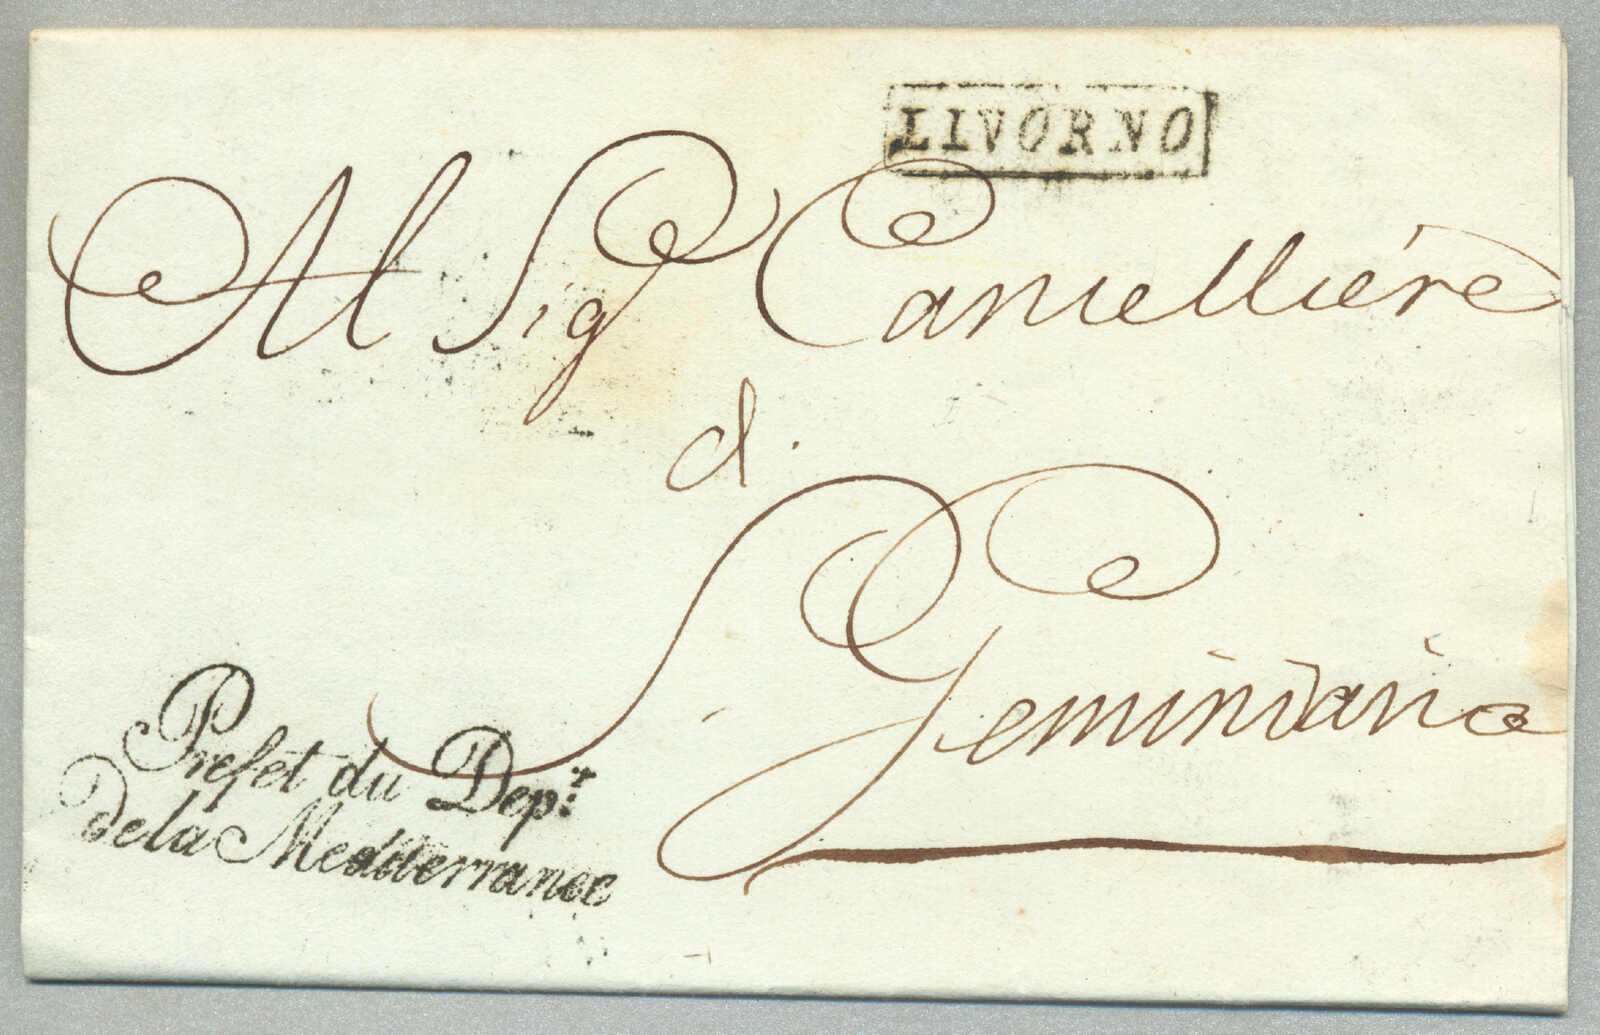 LIVORNO
Al Sig Cancelliere
di
S. Geminiano
Prefet du Dep.t
de la Mediterranee